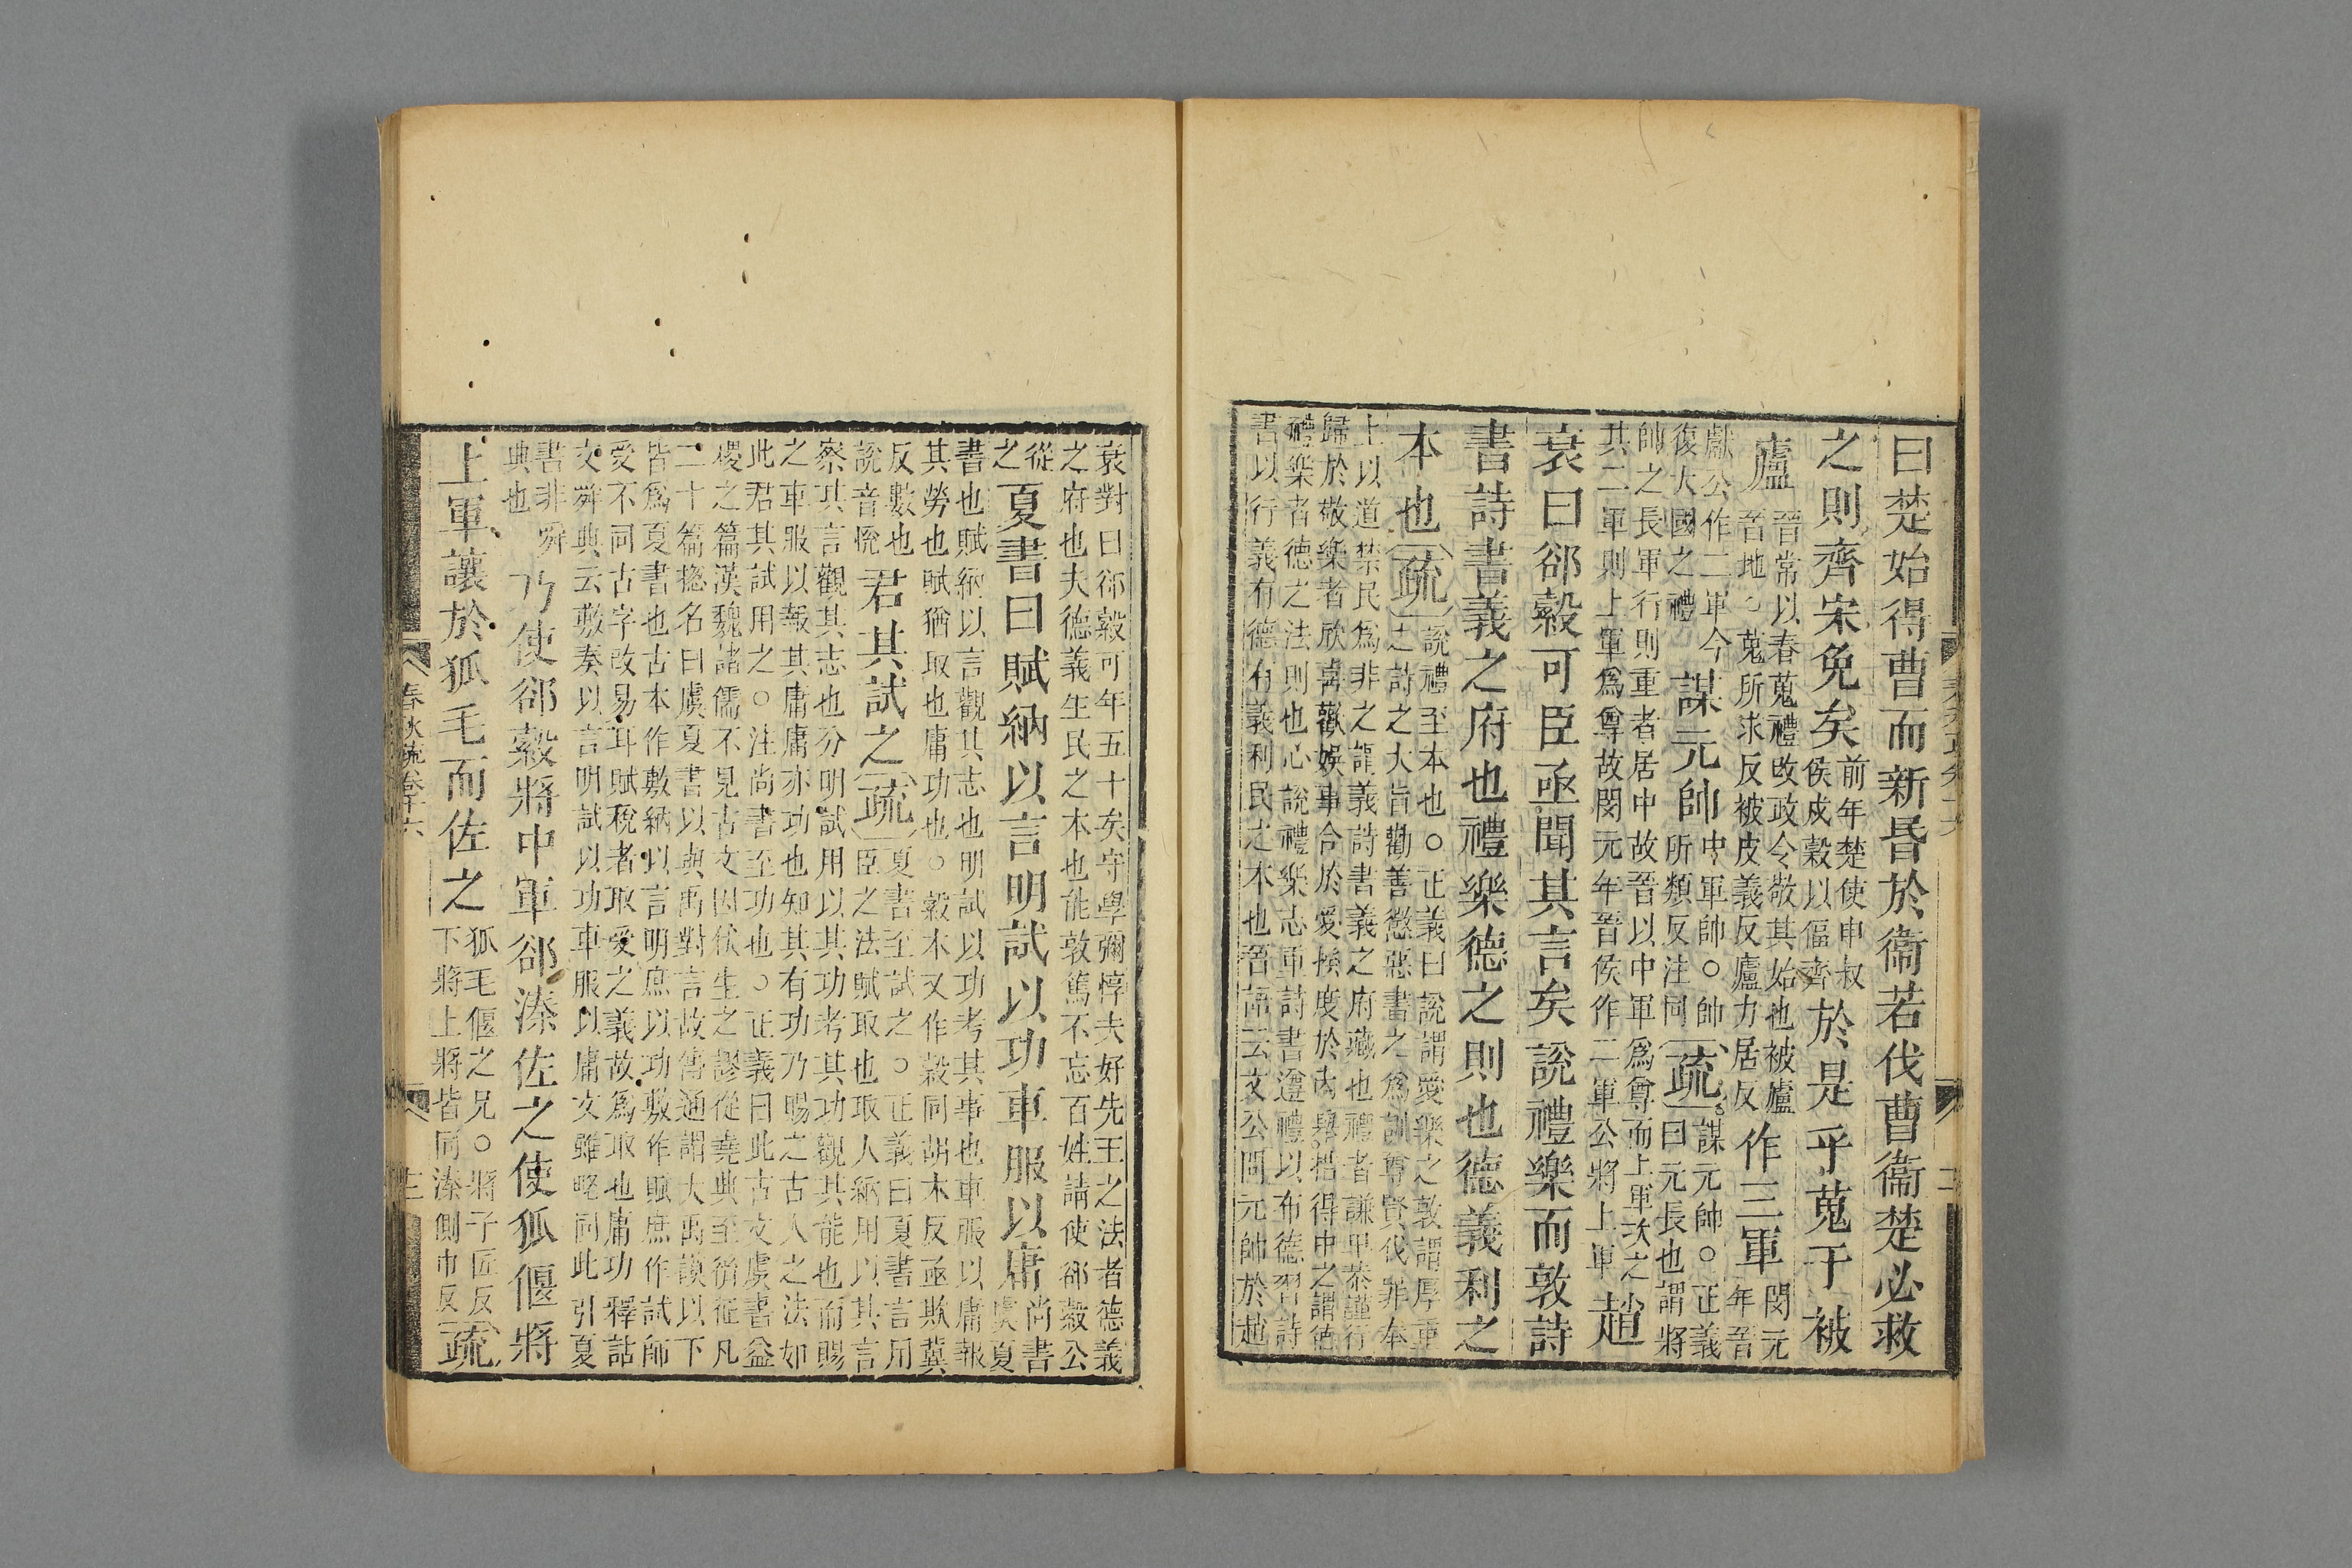 曰楚始得曹而新昏於衞若伐曹衞楚必救
之則齊宋免矣前年楚使申叔侯戍穀以偪齊於是乎蒐于被
廬晉常以春蒐禮改政令敬其始也被廬晉地○蒐所求反被皮義反廬力居反作三軍閔元年晉
獻公作二軍今復大國之禮謀元帥中軍帥○帥所類反注同疏謀元帥○正義曰元長也謂將
帥之長軍行則重者居中故晉以中軍爲尊而上軍次之其二軍則上軍爲尊故閔元年晉侯作二軍公將上軍趙
衰曰郤縠可臣亟聞其言矣說禮樂而敦詩
書詩書義之府也禮樂德之則也德義利之
本也疏說禮至本也○正義曰說謂愛樂之敦謂厚重之詩之大旨勸善懲惡書之爲訓尊賢伐罪奉
上以道禁民爲非之謂義詩書義之府藏也禮者謙卑恭謹行歸於敬樂者欣喜歡娛事合於愛揆度於內舉措得中之謂德
禮樂者德之法則也心說禮樂志重詩書遵禮以布德習詩書以行義有德有義利民之本也晉語云文公問元帥於趙
衰對曰郤縠可年五十矣守學彌惇夫好先王之法者德義之府也夫德義生民之本也能敦篤不忘百姓請使郤縠公
從之夏書曰賦納以言明試以功車服以庸尚書虞夏
書也賦納以言觀其志也明試以功考其事也車服以庸報其勞也賦猶取也庸功也○縠本又作穀同胡木反亟欺冀
反數也說音悅君其試之疏夏書至試之○正義曰夏書言用臣之法賦取也取人納用以其言
察其言觀其志也分明試用以其功考其功觀其能也而賜之車服以報其庸庸亦功也知其有功乃賜之古人之法如
此君其試用之○注尚書至功也○正義曰此古文虞書益稷之篇漢魏諸儒不見古文因伏生之謬從堯典至徿征凡
二十篇揔名曰虞夏書以與禹對言故傳通謂大禹謨以下皆爲夏書也古本作敷納以言明庶以功敷作賦庶作試師
受不同古字改易耳賦稅者取受之義故爲取也庸功釋詁文舜典云敷奏以言明試以功車服以庸文雖略同此引夏
書非舜典也乃使郤縠將中軍郤溱佐之使狐偃將
上軍讓於狐毛而佐之狐毛偃之兄○將子匠反下將上將皆同溱側巾反疏
春秋疏卷十六